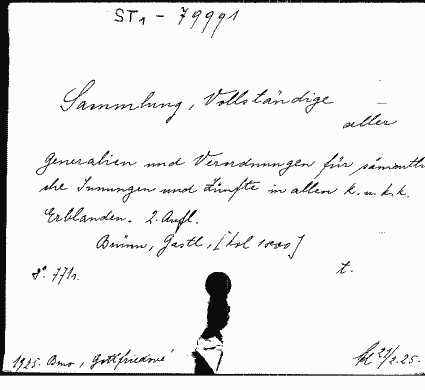 ST1 - 79991
Sammlung, Vollständige
aller
Generalien und Verordnungen für sämmtli-
che Innungen und Zünfte in allen k. u. k. k.
Erblanden. 2. Aufl.
Brünn, Gastl, [kol 1800]
8° 771.
t.
1925. Brno, Gottfriedové
27/2.25.